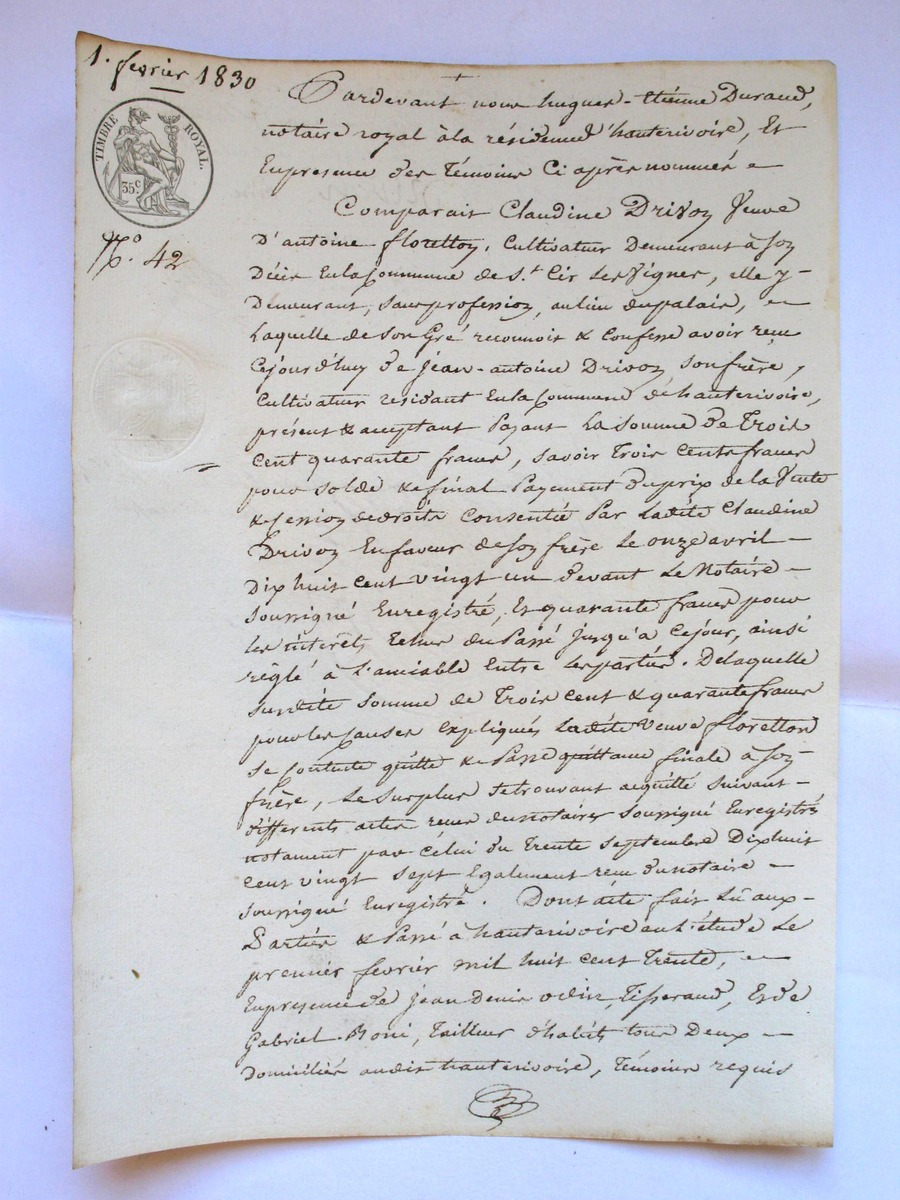 1. fevrier 1830
TIMBRE ROYAL.
35 c
N.o 42
Pardevant nous hugues-Etienne Durand,
notaire royal à la résidence d'hauterivoire, Et
En presence des Témoins Ci après nommés
Comparait Claudine Drivon Veuve
D'antoine floretton, Cultivateur Demeurant à Son
Décès En la Commune de St. Cir Les Vignes, elle y
Demeurant, sans profession, au lieu du palais,
Laquelle de Son Gré reconnoit & Confesse avoir reçu
Cejourd'huy de jéan-antoine Drivon son frère,
Cultivateur résidant En la Commune d'hauterivoire,
présent & acceptant Payant La Somme de Trois
Cent quarante francs, savoir Trois Cents francs
pour solde & final Payement du prix de la Vente
& Cession de droits Consentie Par Ladite Claudine
Drivon En faveur de Son frère Le onze avril
Dix huit Cent vingt un devant Le Notaire
Soussigné Enregistré, Et quarante francs pour
les intérêts du Passé jusqu'à Cejour, ainsi
réglé à L'amiable Entre Les parties. De laquelle
susdite Somme de Trois Cent & quarante francs
pour les Causes Expliquées Ladite Veuve floretton
se Contente quitte & Passe quittance finale à Son
frère, Le Surplus Se trouvant acquitté suivant
différents actes reçus du notaire Soussigné Enregistrés
notament par Célui du Trente Septembre Dix huit
Cent vingt Sept Egalement reçu du notaire
Soussigné Enregistré. Dont acte fait Lû aux
Parties & Passé à hauterivoire en L'étude Le
premier février mil huit Cent Trente,
En presence de jean Denis Tisserand, Et de
Gabriel, Tailleur d'habits tous Deux
Domiciliés audit hauterivoire, Témoins requis